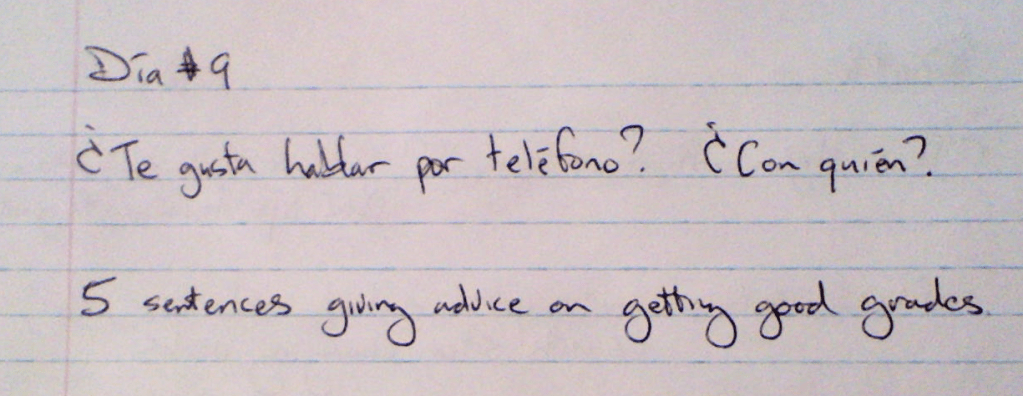 Día #9
¿Te gusta hablar por teléfono? ¿Con quién?
5 sentences giving advice on getting good grades